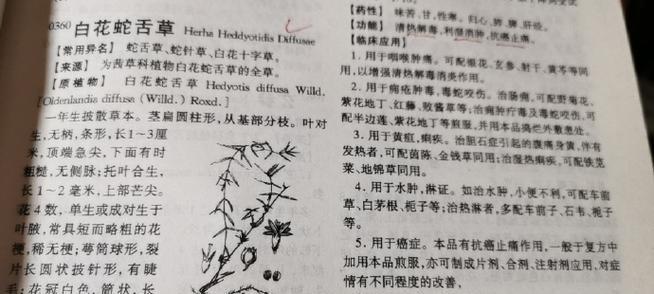 0360 白花蛇舌草 Herba Heddyotidis Diffusae
【常用异名】 蛇舌草、蛇针草、白花十字草。
【来源】 为茜草科植物白花蛇舌草的全草。
【原植物】 白花蛇舌草 Hedyotis diffusa Willd.
[Oldenlandia diffusa (Willd.) Roxd.]
一年生披散草本。茎扁圆柱形，从基部分枝。叶对
生，无柄，条形，长1～3厘
米，顶端急尖，下面有时
粗糙，无侧脉；托叶合生，
长1～2毫米，上部芒尖。
花4数，单生或成对生于
叶腋，常具短而略粗的花
梗，稀无梗；萼筒球形，裂
片长圆状披针形，有睫
毛；花冠白色，筒状，长
【药性】 味苦、甘，性寒。归心、肺、脾、肝经。
【功能】 清热解毒，利湿消肿，抗癌止痛。
【临床应用】
1．用于咽喉肿痛。可配银花、玄参、射干、黄芩等同
用，以增强清热解毒消炎作用。
2．用于痈疮肿毒，毒蛇咬伤。治肠痈，可配野菊花、
紫花地丁、红藤、败酱草等；治痈肿疔毒及毒蛇咬伤，可
配半边莲、紫花地丁等煎服，并用本品捣烂外敷患处。
3．用于黄疸，痢疾。治胆石症引起的腹痛身黄，伴有
发热者，可配茵陈、金钱草同用；治湿热痢疾，可配铁苋
菜、地锦草同用。
4．用于水肿，淋证。如治水肿，小便不利，可配车前
草、白茅根、栀子等；治热淋者，多配车前子、石韦、栀子
等。
5．用于癌症。本品有抗癌止痛作用，一般于复方中
加用本品煎服，亦可制成片剂、合剂、注射剂应用，对症
情有不同程度的改善，